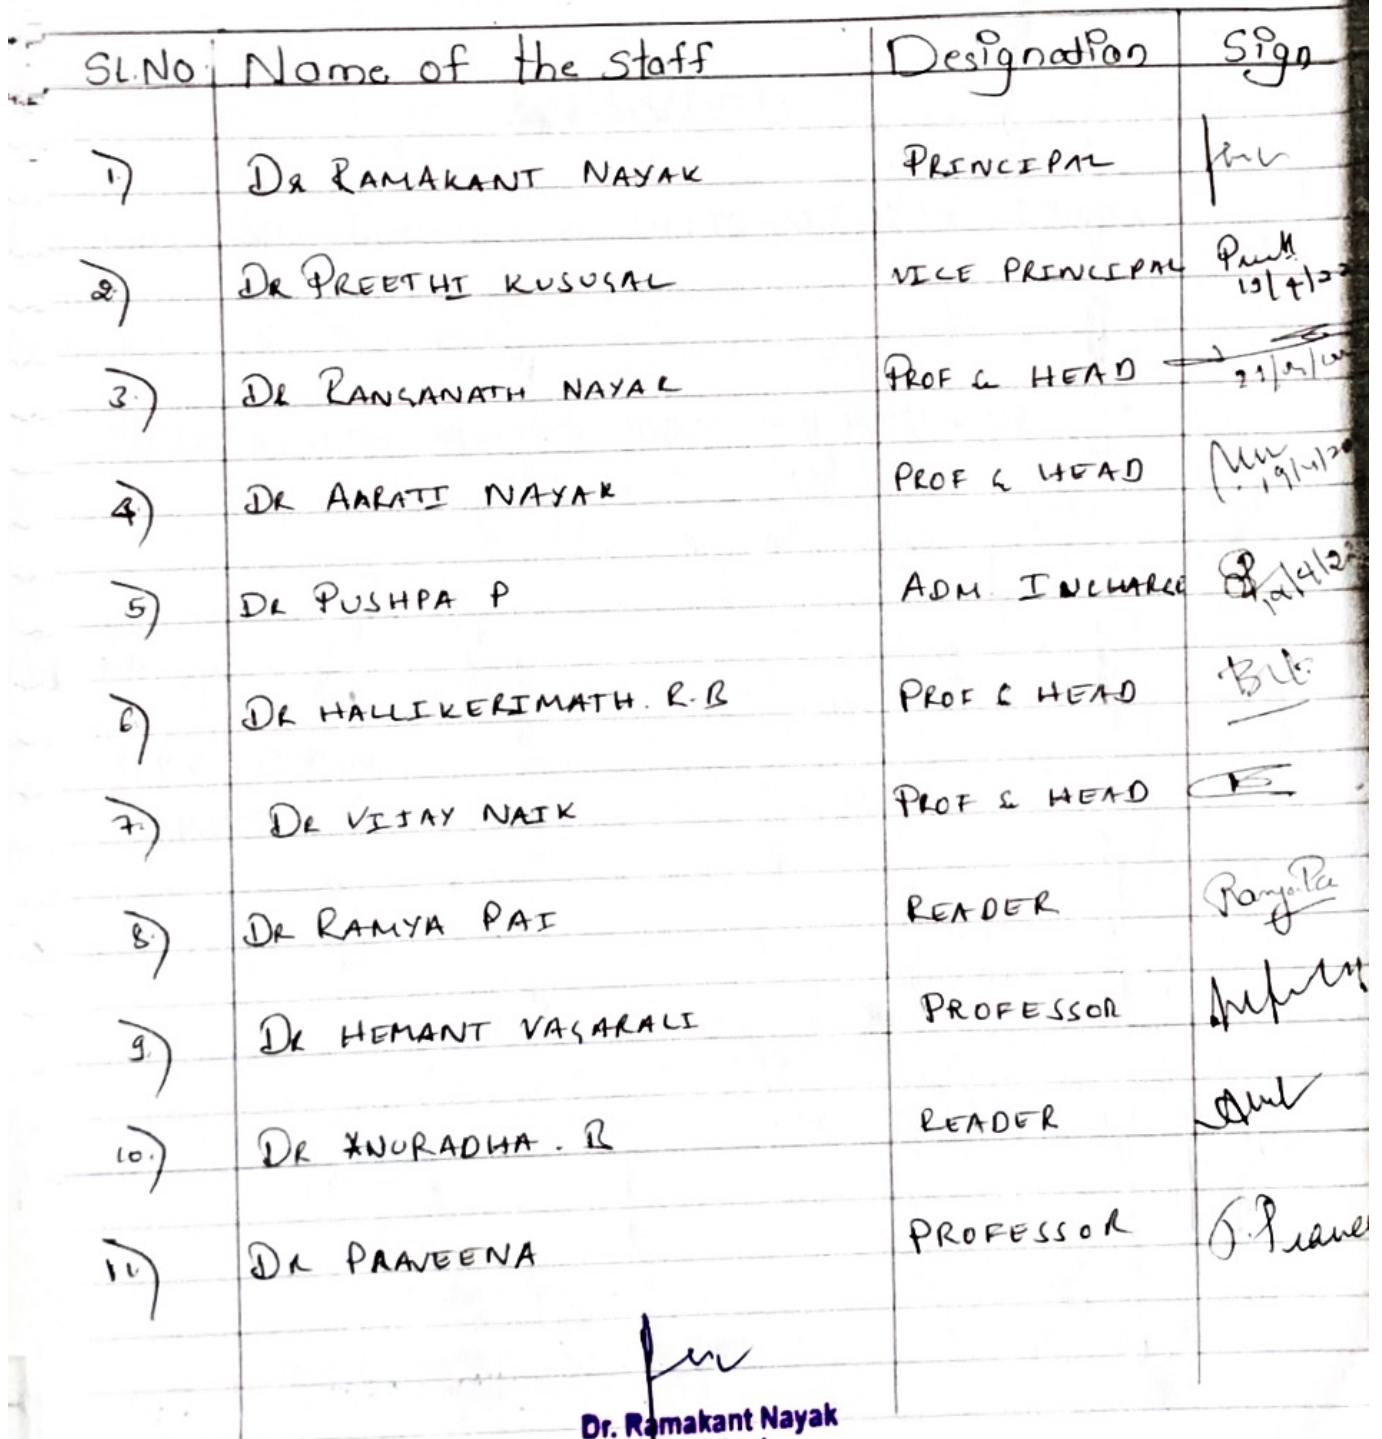 SL.No. Name of the staff Designation Sign
1.) DR RAMAKANT NAYAK PRINCIPAL
2.) DR PREETHI KUSUGAL VICE PRINCIPAL 19/4/22
3.) DR RANGANATH NAYAK PROF & HEAD
4.) DR AARATI NAYAK PROF & HEAD
5.) DR PUSHPA P ADM. INCHARGE
6.) DR HALLIKERIMATH. R.B PROF & HEAD
7.) DR VIJAY NAIK PROF & HEAD
8.) DR RAMYA PAI READER
9.) DR HEMANT VAGARALI PROFESSOR
10.) DR ANURADHA. B READER
11.) DR PRAVEENA PROFESSOR
Dr. Ramakant Nayak